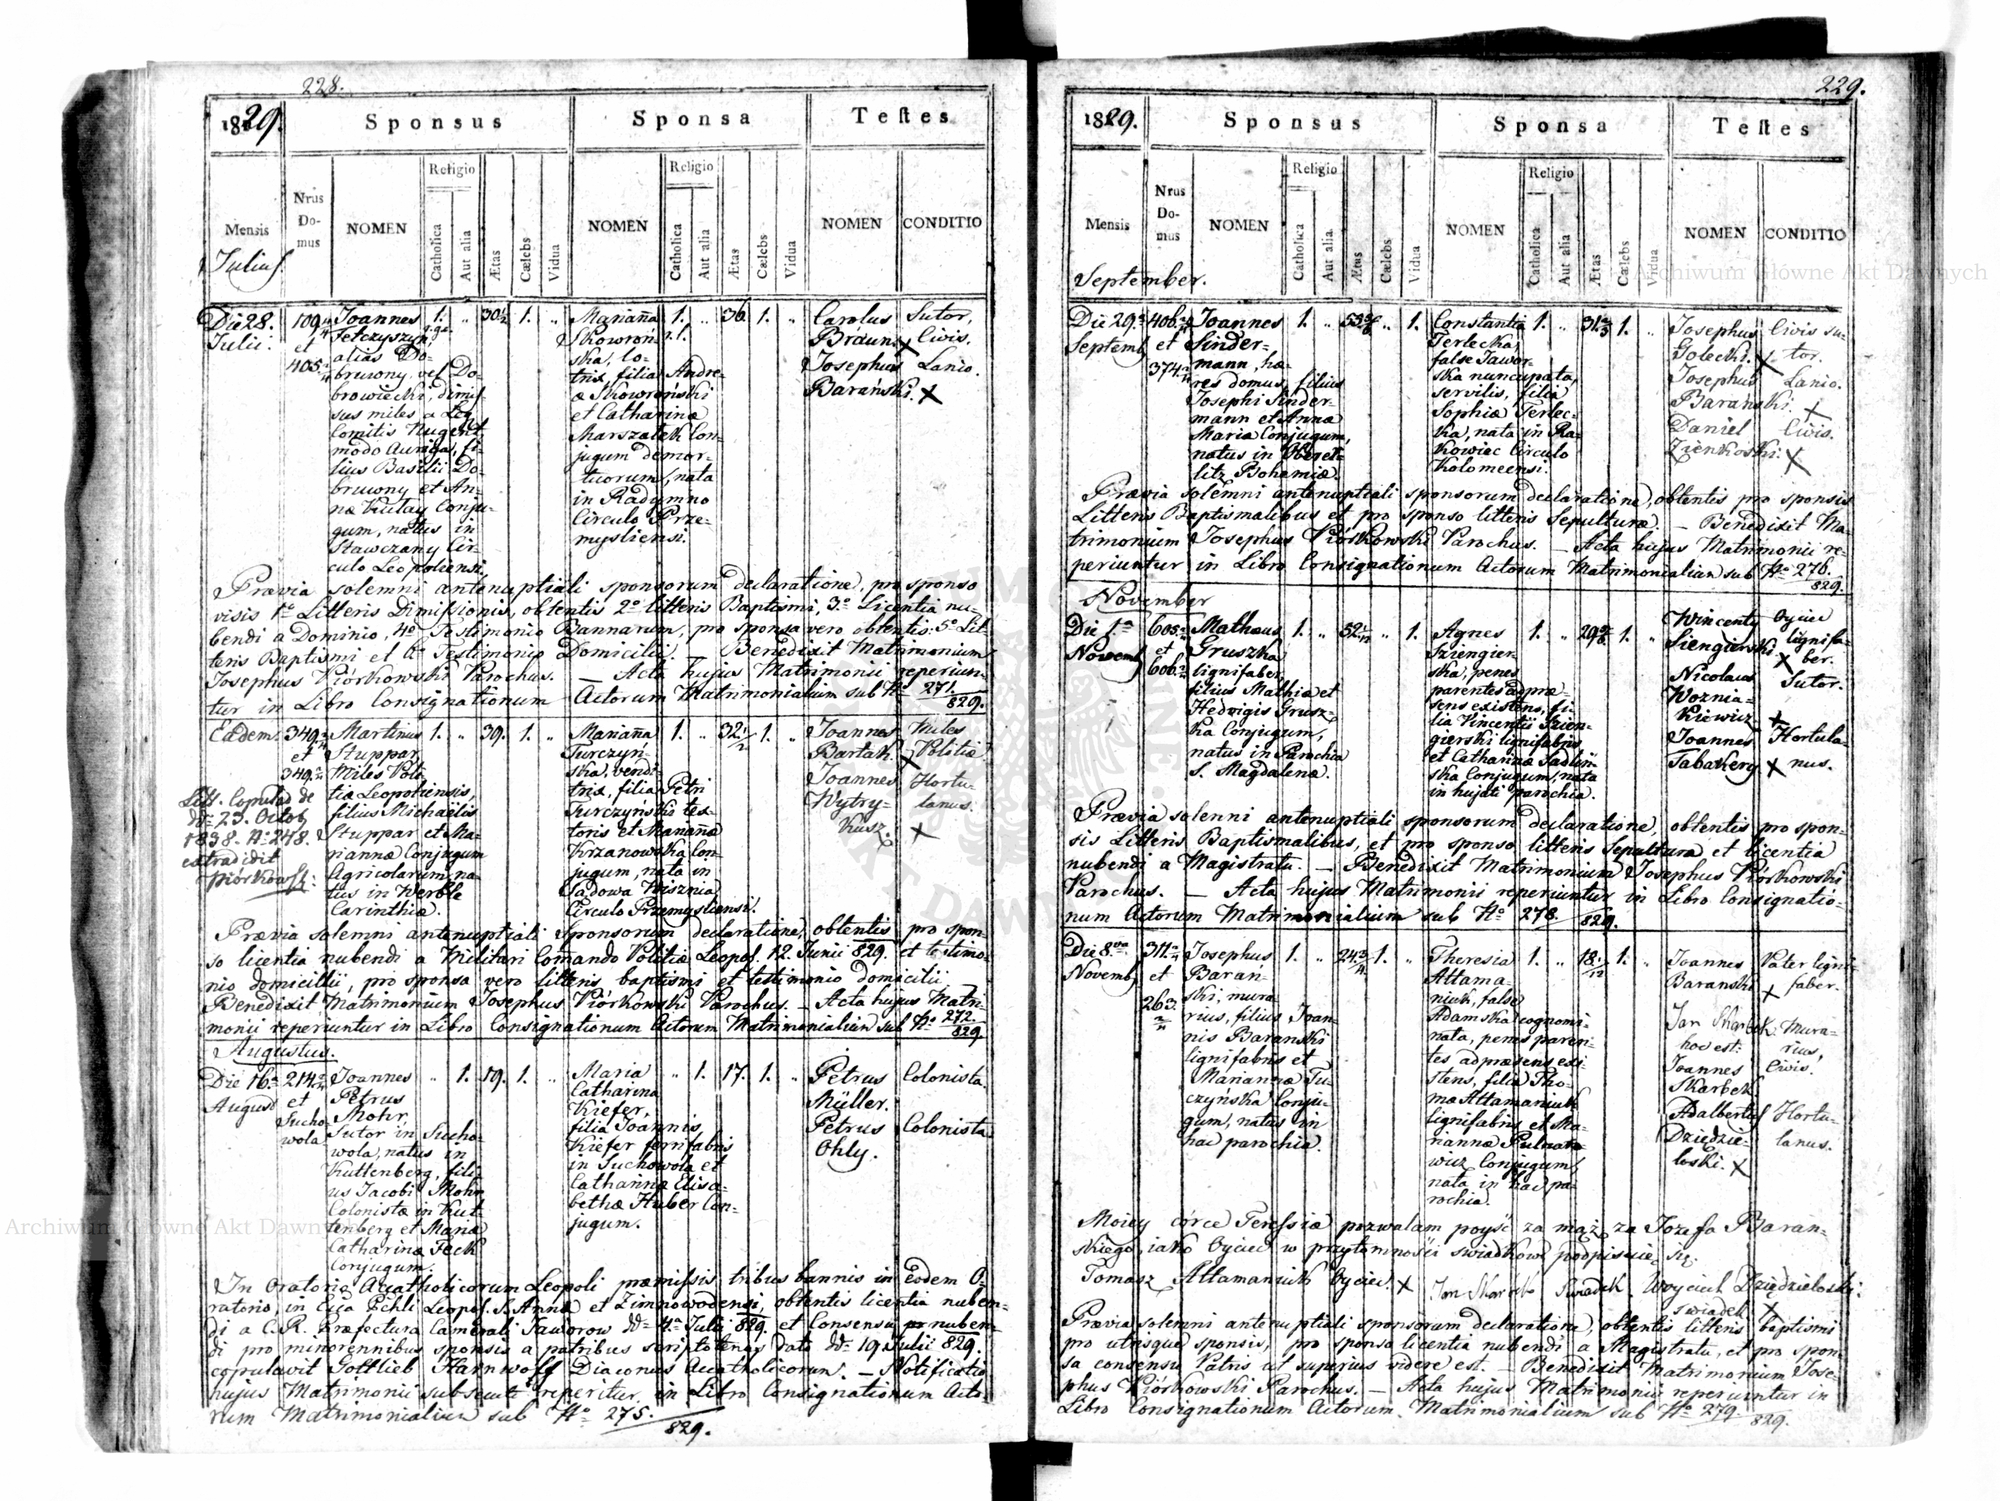 228.
1829.
Sponsus
Sponsa
Testes
Mensis
Nrus Do-mus
NOMEN
Religio
Catholica
Aut alia
Ætas
Cælebs
Vidua
NOMEN
Religio
Catholica
Aut alia
Ætas
Cælebs
Vidua
NOMEN
CONDITIO
Julius.
Die 28.
Julii.
109
et
405
Joannes
Felczyszyn
alias Do-
bruwony vel Do-
browiecki, dimis-
sus miles a Leg
Comitis Nugent
modo Auriga, fi-
lius Basilii Do-
bruwony et An-
næ Kiutay Conju-
gum, natus in
Stawczany Cir-
culo Leopoliensi
1.
30½
1.
Marianna
Skowroń-
ska, lo-
trix, filia Andre-
æ Skowroński
et Catharinæ
Marszałek Con-
jugum demor-
tuorum, nata
in Radymno
Circulo Prze-
mysliensi.
1.
36
1.
Carolus
Braun X
Josephus
Barański. X
Sutor,
Civis.
Lanio.
Prævia solemni antenuptiali sponsorum declaratione, pro sponso
visis 1º Litteris Dimissionis, obtentis 2º litteris Baptismi, 3º Licentia nu-
bendi a Dominio, 4º Testimonio Bannarum, pro sponsa vero obtentis: 5º Lit-
teris Baptismi et 6º Testimonio Domicilii. — Benedixit Matrimonium
Josephus Piórkowski Parochus. — Acta hujus Matrimonii reperiun-
tur in Libro Consignationum Actorum Matrimonialium sub Nº 271.
829.
Eadem.
349
et
349
Martinus
Stuppar
Miles Poli-
tiæ Leopoliensis,
filius Michaëlis
Stuppar et Ma-
riannæ Conjugum
Agricolarum, na-
tus in Werble
Carinthiæ.
1.
39.
1.
Marianna
Turczyń-
ska, vendi-
trix, filia Petri
Turczyński tex-
toris et Mariannæ
Krzanowska Con-
jugum, nata in
Sadowa Wisznia
Circulo Przemysliensi.
1.
32 1/12
1.
Joannes
Bartak X
Joannes
Wytry-
kusz. X
Miles
Politiæ.
Hortu-
lanus.
Litt. Copulat de
dtº 23. Octob
1838. Nº 248.
extradidit
Piórkowski:
Prævia solemni antenuptiali sponsorum declaratione, obtentis pro spon-
so licentia nubendi a Militari Comando Politiæ Leopol. 12. Junii 829. et testimo-
nio domicilii, pro sponsa vero litteris baptismi et testimonio domicilii
Benedixit Matrimonium Josephus Piórkowski Parochus. — Acta hujus Matri-
monii reperiuntur in Libro Consignationum Actorum Matrimonialium sub Nº 272.
829.
Augustus.
Die 16ª
Augusti
214
et
Sucho-
wola
Joannes
Petrus
Mohr
Sutor in Sucho-
wola, natus in
Kuttenberg, fili-
us Jacobi Mohr
Colonistæ in Kut-
tenberg et Mariæ
Catharinæ Feck
Conjugum.
1.
19.
1.
Maria
Catharina
Kiefer,
filia Joannis
Kiefer ferrifabris
in Suchowola et
Catharinæ Elisa-
bethæ Huber Con-
jugum.
1.
17.
1.
Petrus
Müller.
Petrus
Ohly.
Colonista.
Colonista
In Oratorio Acatholicorum Leopoli præmissis tribus bannis in Eodem O-
ratorio, in Ecca Pchli Leopol. S. Annæ et Zimnowodensi, obtentis licentia nuben-
di a C. R. Præfectura Camerali Jaworow ddº 4ª Julii 829. et Consensu pr nuben-
di pro minorennibus sponsis a patribus scripto tenus dato ddº 19 Julii 829.
copulavit Gottlieb Harnwolff Diaconus Acatholicorum. — Notificatio
hujus Matrimonii subsecuti reperitur in Libro Consignationum Acto-
rum Matrimonialium sub Nº 275.
829.
229.
1829.
Sponsus
Sponsa
Testes
Mensis
Nrus Do-mus
NOMEN
Religio
Catholica
Aut alia
Ætas
Cælebs
Vidua
NOMEN
Religio
Catholica
Aut alia
Ætas
Cælebs
Vidua
NOMEN
CONDITIO
September.
Die 29ª
Septemb
406
et
374
Joannes
Sinder-
mann, hæ-
res domus, filius
Josephi Sinder-
mann et Anna
Maria Conjugum,
natus in
Bohemiæ.
1.
1.
Constantia
Terlecka,
false Jawor-
ska nuncupata,
servilis, filia
Sophiæ Terlec-
ka, nata in Ra-
kowiec Circulo
Kolomeensi.
1.
1.
Josephus
Golecki X
Josephus
Barański. X
Daniel
Zienkoski. X
Civis su-
tor.
Lanio.
Civis.
Prævia solemni antenuptiali sponsorum declaratione, obtentis pro sponsis
Litteris Baptismalibus et pro sponso litteris Sepulturæ. — Benedixit Ma-
trimonium Josephus Piórkowski Parochus. — Acta hujus Matrimonii re-
periuntur in Libro Consignationum Actorum Matrimonialium sub Nº 276.
829.
November
Die 1ª
Novemb
605
et
606
Mathæus
Gruszka
lignifaber,
filius Mathiæ et
Hedwigis Grusz-
ka Conjugum,
natus in Parochia
S. Magdalenæ.
1.
1.
Agnes
Sziengier-
ska, penes
parentes adpræ-
sens existens, fi-
lia Vincentii Szien-
gierski lignifabris
et Catharinæ Sadlin-
ska Conjugum, nata
in hujati parochia.
1.
1.
Wincenty
Siengierski X
Nicolaus
Woznia-
kiewicz X
Joannes
Tabaniery X
Oyciec
lignifa-
ber.
Sutor.
Hortula-
nus.
Prævia solemni antenuptiali sponsorum declaratione, obtentis pro spon-
sis Litteris Baptismalibus, et pro sponso litteris Sepulturæ et licentia
nubendi a Magistratu. — Benedixit Matrimonium Josephus Piórkowski
Parochus. — Acta hujus Matrimonii reperiuntur in Libro Consignatio-
num Actorum Matrimonialium sub Nº 278.
829.
Die 8va
Novemb
311
et
263
Josephus
Barań-
ski, mura-
rius, filius Joan-
nis Baranski
lignifabris et
Mariannæ Tu-
czyńska Conju-
gum, natus in
hac parochia.
1.
1.
Theresia
Attama-
niuk, false
Adamska cognomi-
nata, penes paren-
tes adpræsens exi-
stens, filia Tho-
mæ Attamaniuk
lignifabris et Ma-
riannæ
wicz Conjugum,
nata in hac pa-
rochia.
1.
18 1/12
1.
Joannes
Baranski X
Jan Skarbek
hoc est:
Joannes
Skarbek
Adalbertus
Dziędzie-
loski. X
Pater ligni-
faber.
Mura-
rius,
Civis.
Hortu-
lanus.
Moiey córce Teressie pozwalam poyść za mąż za Jozefa Baran-
skiego, iako Oyciec w przytomności swiadków podpisuię się.
Tomasz Attamaniuk Oyciec. X Jan Skarbek Swiadek. Woyciech Dziędzieloski:
swiadek X
Prævia solemni antenuptiali sponsorum declaratione, obtentis litteris baptismi
pro utrisque sponsis, pro sponso licentia nubendi a Magistratu, et pro spon-
sa consensu Patris ut superius videre est. — Benedixit Matrimonium Jose-
phus Piórkowski Parochus. — Acta hujus Matrimonii reperiuntur in
Libro Consignationum Actorum Matrimonialium sub Nº 279.
829.
Archiwum Główne Akt Dawnych
Archiwum Główne Akt Dawnych